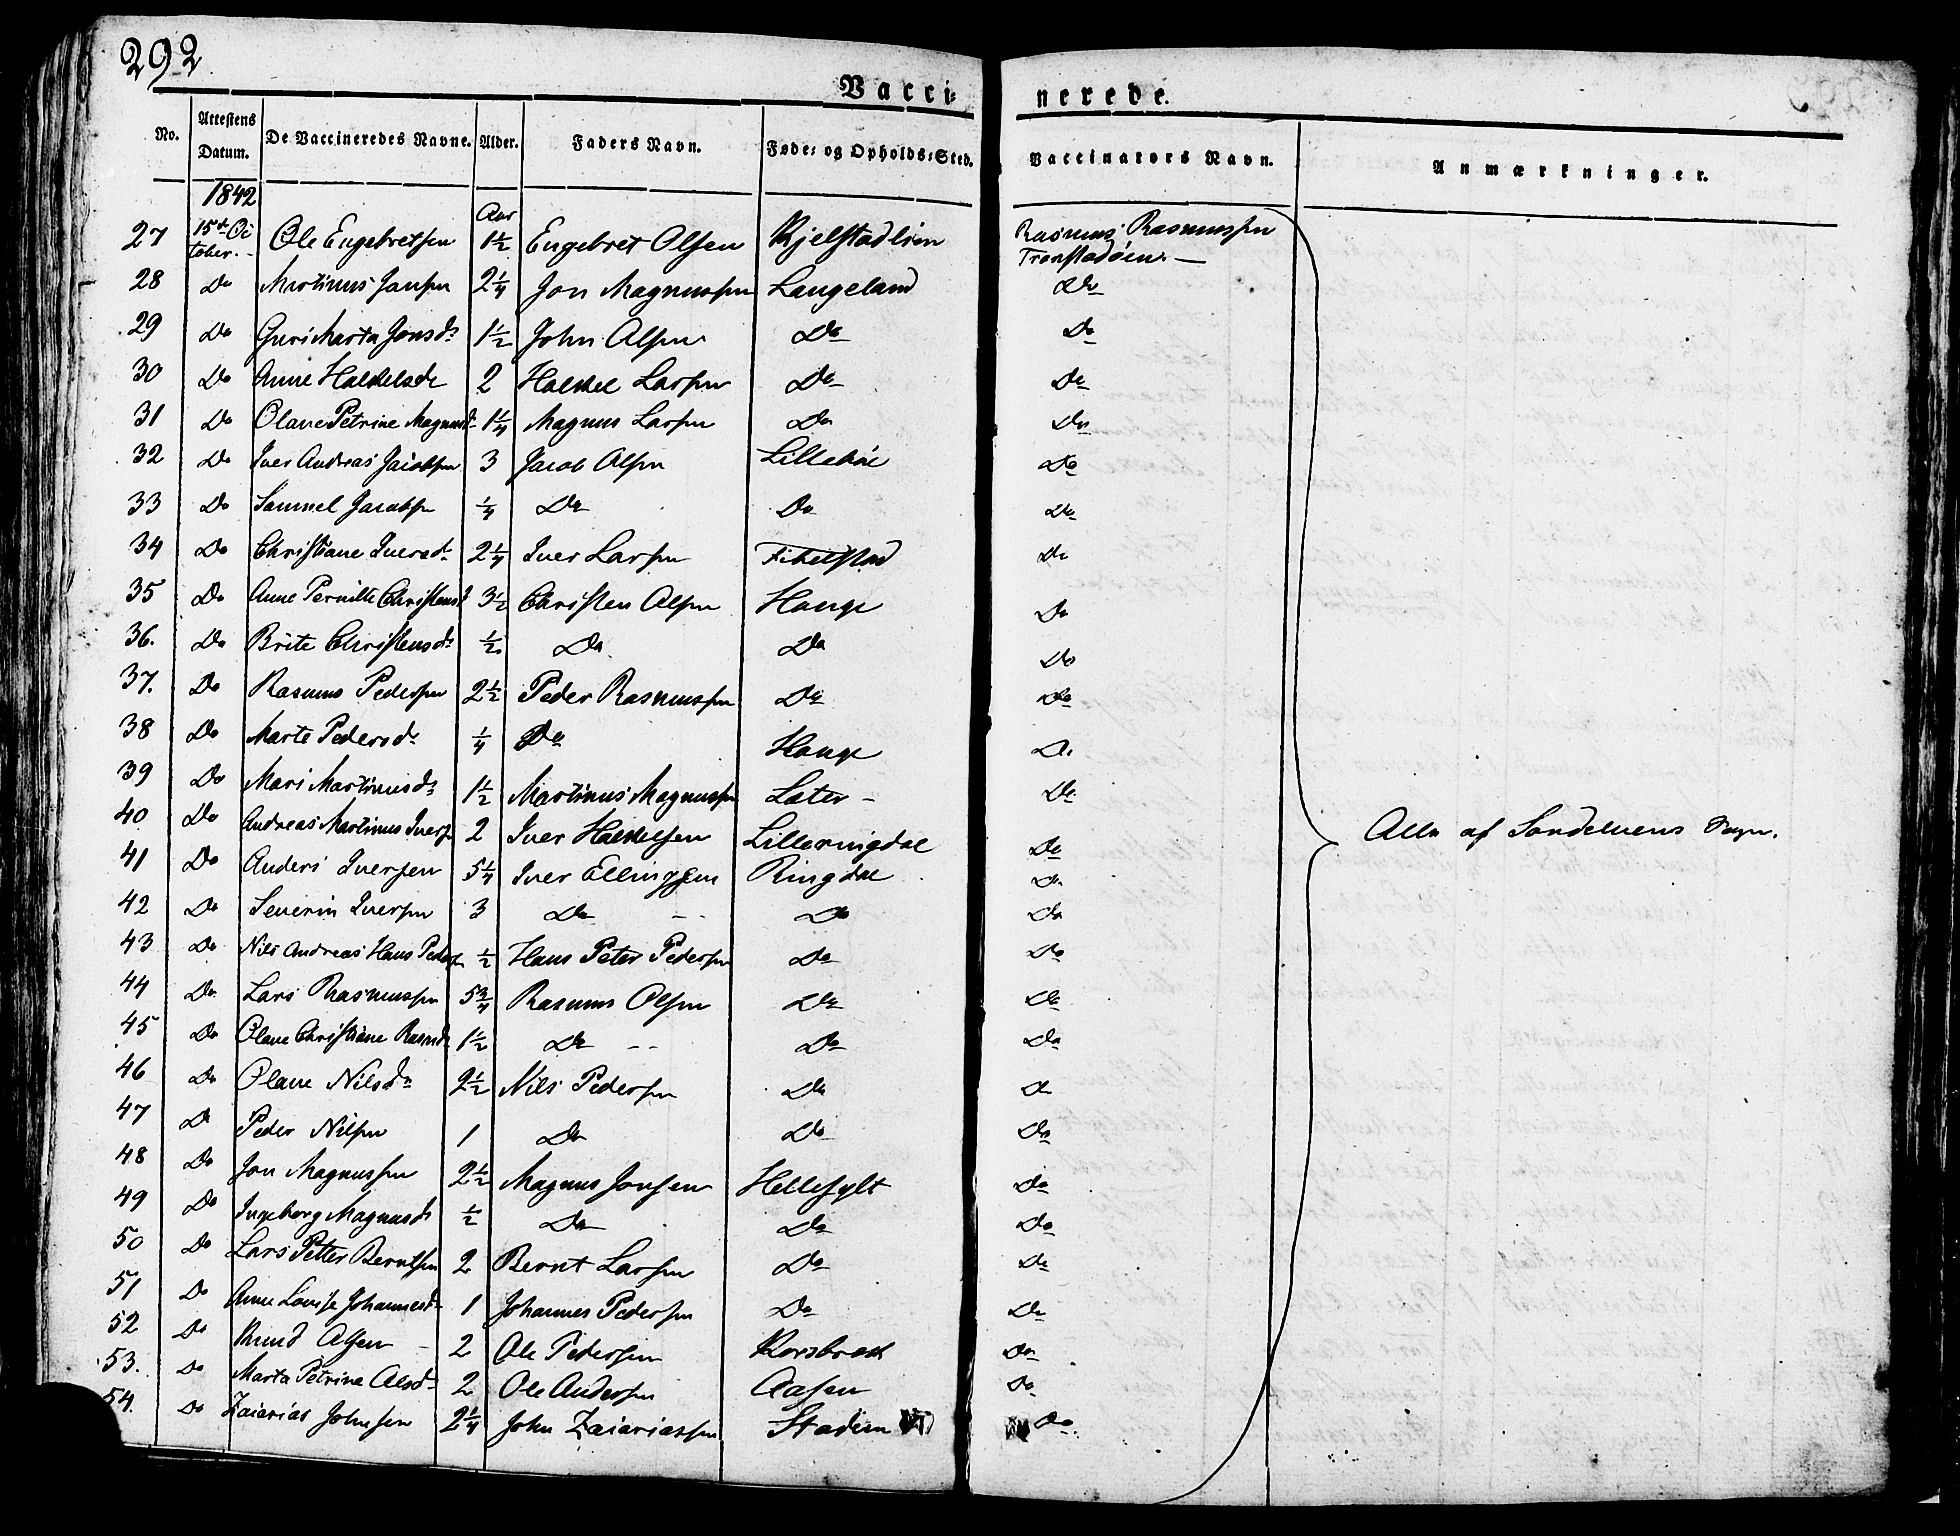 292
Vacci- nerede.
No. Attestens Datum. De Vaccineredes Navne. Alder. Faders Navn. Føde- og Opholds-Sted. Vaccinators Navn. Anmærkninger.
1842
Aar
27 15de Oc tober. Ole Engebretsen 1½ Engebret Olsen Kjelstadlien Rasmus Rasmussen Tronstadøien.
28 Do Martinus Jansen 2¼ Jon Magnussen Langeland Do
29 Do Guri Marta Jonsdr 1½ John Olsen Do Do
30 Do Anne Halkelsdr 2 Halkel Larsen Do Do
31 Do Olane Petrine Magnusd. 1¼ Magnus Larsen Do Do
32 Do Iver Andreas Jacobsen 3 Jacob Olsen Lillebøe Do
33 Do Samuel Jacobsen ¼ Do Do Do
34 Do Christiane Iversdr 2¼ Iver Larsen Fibelstad Do
35 Do Anne Pernille Christensd 3½ Christen Olsen Hauge Do
36. Do Brite Christensdr ½ Do Do Do
37. Do Rasmus Pedersen 2½ Peder Rasmussen Do Do
38 Do Marte Pedersdr ¼ Do Hauge Do
39 Do Mari Martinusdr 1½ Martinus Magnussen Sæter Do
40 Do Andreas Martinus Iversen 2 Iver Halkelsen Lilleringdal Do
41 Do Anders Iversen 5¼ Iver Ellingsen Ringdal Do
42 Do Severin Iversen 3 Do Do Do
43 Do Nils Andreas Hans Peders. ½ Hans Peter Pedersen Do Do
44 Do Lars Rasmussen 5¾ Rasmus Olsen Do Do
45 Do Olane Christiane Rasmdr 1½ Do Do Do
46 Do Olane Nilsdr 2½ Nils Pedersen Do Do
47 Do Peder Nilsen 1 Do Do Do
48 Do Jon Magnussen 2½ Magnus Jonsen Hellesylt Do
49 Do Ingeborg Magnusdr ½ Do Do Do
50 Do Lars Petter Berntsen 2 Bernt Larsen Do Do
51 Do Anne Louise Johannesdr 1 Johannes Pedersen Do Do
52 Do Knud Olsen 2 Ole Pedersen Korsbræk Do
53. Do Marta Petrina Olsdr 2 Ole Andersen Aasen Do
54. Do Zacarias Johnsen 2¼ John Zacariassen Stadim Do
Alle af Sondelvens Sogn.